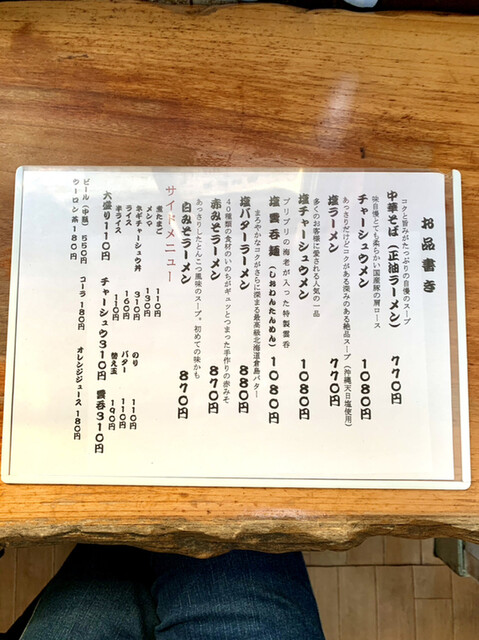 お品書き
中華そば（正油ラーメン） 770円
コクと旨みがたっぷりの自慢のスープ
チャーシュウメン 1080円
味自慢とても柔らかい国産豚の肩ロース
塩ラーメン 770円
あっさりだけどコクがある深みのある絶品スープ（沖縄天日塩使用）
塩チャーシュウメン 1080円
多くのお客様に愛される人気の一品
塩雲呑麺（しおわんたんめん） 1080円
プリプリの海老が入った特製雲呑
塩バターラーメン 880円
まろやかなコクがさらに深まる最高級北海道倉島バター
赤みそラーメン 870円
40種類の食材のいのちがギュッとつまった手作りの赤みそ
白みそラーメン 870円
あっさりしたとんこつ風味のスープ。初めての味かも
サイドメニュー
煮たまご 110円 のり 110円
メンマ 130円 バター 110円
ネギチャーシュウ丼 310円 替え玉 190円
ライス 160円
半ライス 110円
大盛り110円 チャーシュウ310円 雲呑310円
ビール（中瓶）550円 コーラ180円 オレンジジュース 180円
ウーロン茶 180円